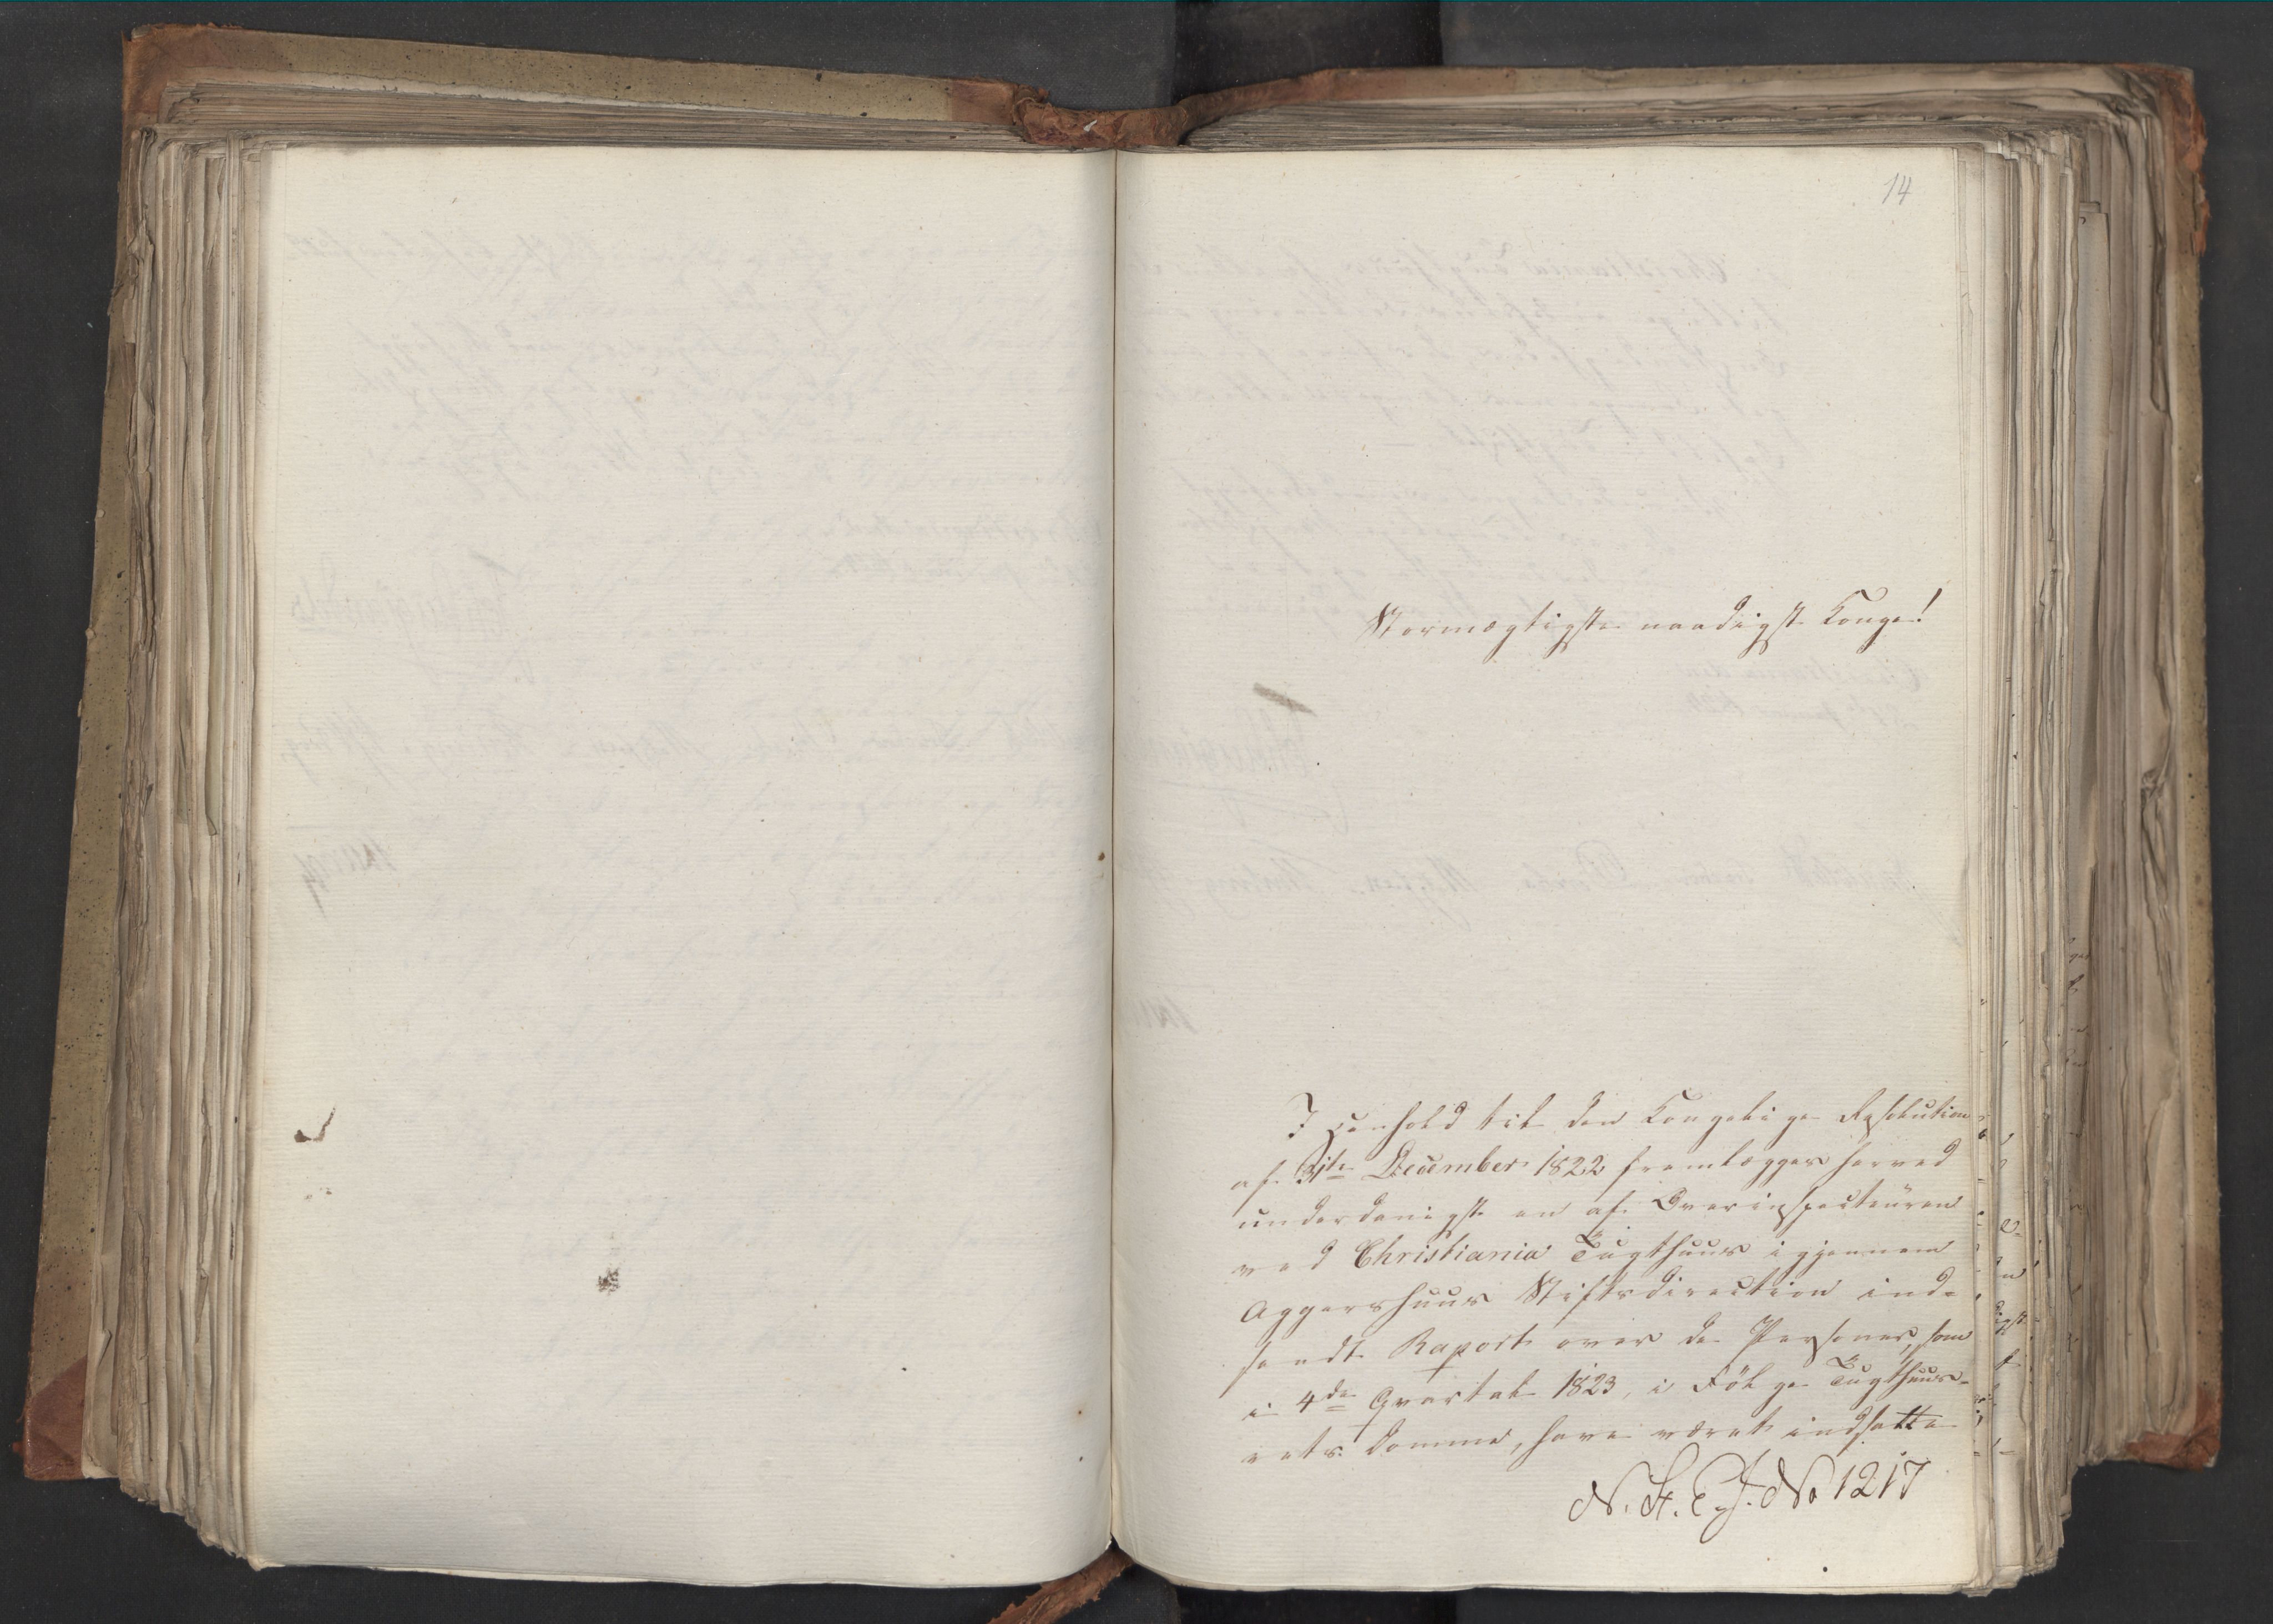 14
Stormægtigste naadigste Konge!
I Henhold til den Kongelige Resolution
af 31te December 1822 fremlægges herved
underdanigst en af Overinspecteuren
ved Christiania Tugthuus igjennem
Aggershuus Stiftsdirection ind-
sendt Raport over de Personer, som
i 4de Qvartal 1823, i Følge Tugthuus-
rets Domme, have været indsatte
N. St. E. J. No 1217